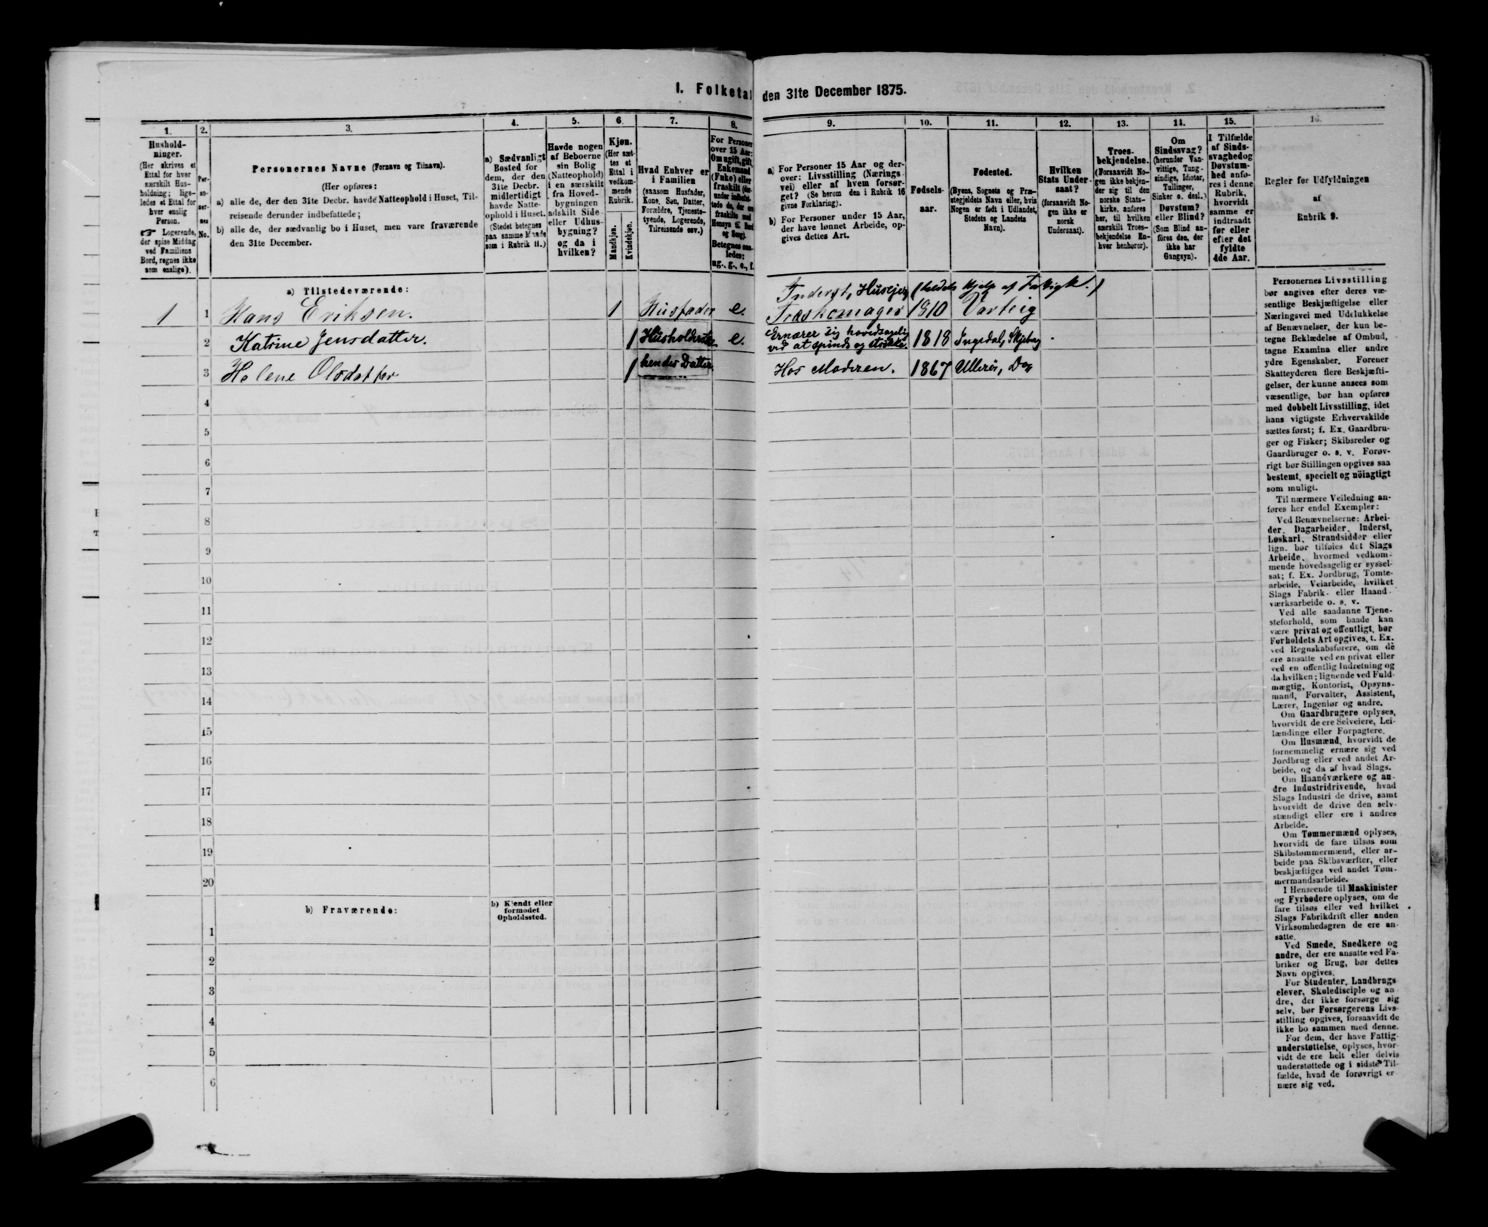 I. Folketal den 31te December 1875.
1.
2.
3.
4.
5.
6.
7.
8.
9.
10.
11.
12.
13.
14.
15.
16.
Hushold-
ninger.
(Her skrives et
Ettal for hver
særskilt Hus-
holdning; lige-
ledes et Ettal for
hver enslig
Person.
☞ Logerende,
der spise Middag
ved Familiens
Bord, regnes ikke
som enslige).
Per-
so-
ner-
nes
No.
Personernes Navne (Fornavn og Tilnavn).
(Her opføres:
a) alle de, der den 31te Decbr. havde Natteophold i Huset, Til-
reisende derunder indbefattede;
b) alle de, der sædvanlig bo i Huset, men vare fraværende
den 31te December.
a) Sædvanligt
Bosted for
dem, der den
31te Decbr.
midlertidigt
havde Natte-
ophold i Huset.
(Stedet betegnes
paa samme Maade
som i Rubrik 11.)
Havde nogen
af Beboerne
sin Bolig
(Natteophold)
i en særskilt
fra Hoved-
bygningen
adskilt Side-
eller Udhus-
bygning?
og da i
hvilken?
Kjøn.
(Her sæt-
tes et
Ettal i
vedkom-
mende
Rubrik.
Mandkjøn.
Kvindekjøn.
Hvad Enhver er
i Familien
(saasom Husfader,
Kone, Søn, Datter,
Forældre, Tjeneste-
tyende, Logerende,
Tilreisende osv.)
For Personer
over 15 Aar:
Om ugift, gift,
Enkemand
(Enke) eller
fraskilt
Betegnes saa-
ledes:
ug., g., e., f.
a) For Personer 15 Aar og der-
over: Livsstilling (Nærings-
vei) eller af hvem forsør-
get? (Se herom den i Rubrik 16
givne Forklaring).
b) For Personer under 15 Aar,
der have lønnet Arbeide, op-
gives dettes Art.
Fødsels-
aar.
Fødested.
(Byens, Sognets og Præ-
stegjeldets Navn eller, hvis
Nogen er født i Udlandet,
Stedets og Landets
Navn).
Hvilken
Stats Under-
saat?
(forsaavidt No-
gen ikke er
norsk
Undersaat).
Troes-
bekjendelse.
(Forsaavidt No-
gen ikke bekjen-
der sig til den
norske Stats-
kirke, anføres
her, til hvilken
særskilt Troes-
bekjendelse En-
hver henhører).
Om
Sindssvag?
(herunder Van-
vittige, Tung-
sindige, Idioter,
Tullinger,
Sinker o. desl.)
Døvstum?
eller Blind?
(Som Blind an-
føres den, der
ikke har
Gangsyn).
I Tilfælde
af Sinds-
svaghed og
Døvstum-
hed anfø-
res i denne
Rubrik,
hvorvidt
samme er
indtraadt
før eller
efter det
fyldte
4de Aar.
Regler for Udfyldningen
af
Rubrik 9.
a) Tilstedeværende:
Inderst, Huseier, (tildels Hjelp af Fattigk.)
1 1 Hans Eriksen. 1 Husfader e. Træskomager 1810 Varteig
2 Katrine Jensdatter. 1 Husholderske e. Ernærer sig hovedsagelig
ved at spinde og strikke. 1818 Ingedal, Skjeberg
3 Helene Olsdatter 1 hendes Datter. Hos Moderen. 1867 Ullerøi, Do
4
5
6
7
8
9
10
11
12
13
14
15
16
17
18
19
20
b) Fraværende:
b) Kjendt eller
formodet
Opholdssted.
1
2
3
4
5
6
Personernes Livsstilling
bør angives efter deres væ-
sentlige Beskjæftigelse eller
Næringsvei med Udelukkelse
af Benævnelser, der kun be-
tegne Beklædelse af Ombud,
tagne Examina eller andre
ydre Egenskaber. Forener
Skatteyderen flere Beskjæfti-
gelser, der kunne ansees som
væsentlige, bør han opføres
med dobbelt Livsstilling, idet
hans vigtigste Erhvervskilde
sættes først; f. Ex. Gaardbru-
ger og Fisker; Skibsreder og
Gaardbruger o. s. v. Forøv-
rigt bør Stillingen opgives saa
bestemt, specielt og nøiagtigt
som muligt.
Til nærmere Veiledning an-
føres her endel Exempler:
Ved Benævnelserne: Arbei-
der, Dagarbeider, Inderst,
Løskarl, Strandsidder eller
lign. bør tilføies det Slags
Arbeide, hvormed vedkom-
mende hovedsagelig er syssel-
sat; f. Ex. Jordbrug, Tomte-
arbeide, Veiarbeide, hvilket
Slags Fabrik- eller Haand-
værksarbeide o. s. v.
Ved alle saadanne Tjene-
steforhold, som baade kan
være privat og offentligt, bør
Forholdets Art opgives, f. Ex.
ved Regnskabsførere, om de
ere ansatte ved en privat eller
ved en offentlig Indretning og
da hvilken; lignende ved Fuld-
mægtig, Kontorist, Opsyns-
mand, Forvalter, Assistent,
Lærer, Ingeniør og andre.
Om Gaardbrugere oplyses,
hvorvidt de ere Selveiere, Lei-
lændinge eller Forpagtere.
Om Husmænd, hvorvidt de
fornemmelig ernære sig ved
Jordbrug eller ved andet Ar-
beide, og da af hvad Slags.
Om Haandværkere og an-
dre Industridrivende, hvad
Slags Industri de drive, samt
hvorvidt de drive den selv-
stændigt eller ere i andres
Arbeide.
Om Tømmermænd oplyses,
hvorvidt de fare tilsøs som
Skibstømmermænd, eller ar-
beide paa Skibsværfter, eller
beskjæftiges ved andet Tøm-
mermandsarbeide.
I Henseende til Maskinister
og Fyrbødere oplyses, om de
fare tilsøs eller ved hvilket
Slags Fabrikdrift eller anden
Virksomhedsgren de ere an-
satte.
Ved Smede, Snedkere og
andre, der ere ansatte ved Fa-
briker og Brug, bør dettes
Navn opgives.
For Studenter, Landbrugs-
elever, Skoledisciple og an-
dre, der ikke forsørge sig
selv, bør Forsørgerens Livs-
stilling opgives, forsaavidt de
ikke bo sammen med denne.
For dem, der have Fattig-
understøttelse, oplyses, hvor-
vidt de ere helt eller delvis
understøttede og i sidste Til-
fælde, hvad de forøvrigt er-
nære sig ved.